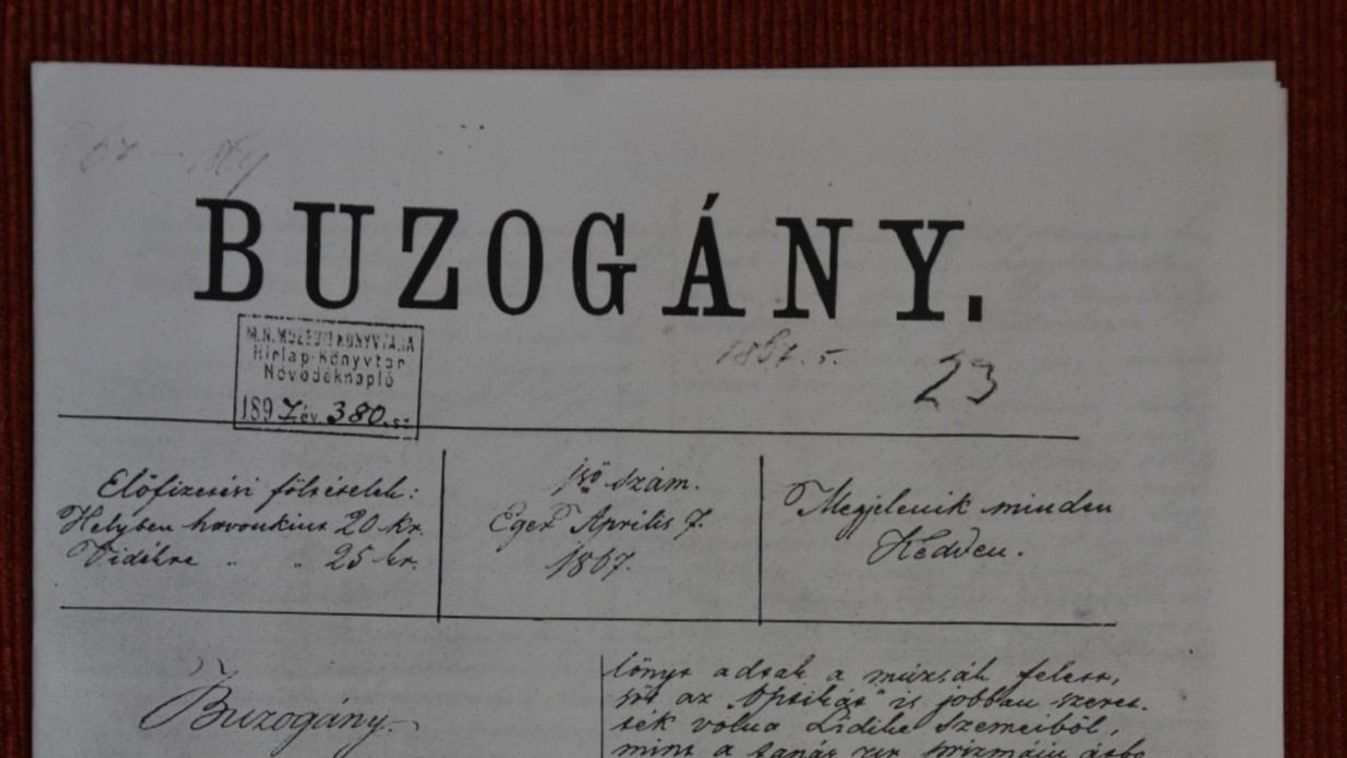 BUZOGÁNY.
1867. 5.
23
M. N. MUZEUM KÖNYVTÁRA
Hirlap-Könyvtár
Növedéknapló
1897. év. 380. sz.
Előfizetési föltételek:
Helyben havonkint 20 kr.
Vidékre " " 25 kr.
1ső szám.
Eger Április 7.
1867.
Megjelenik minden
Kedden.
Buzogány.
lönyt adtak a múzsák
sőt az is jobban szeret-
ték volna Lidike szemeiből,
mint a tanár